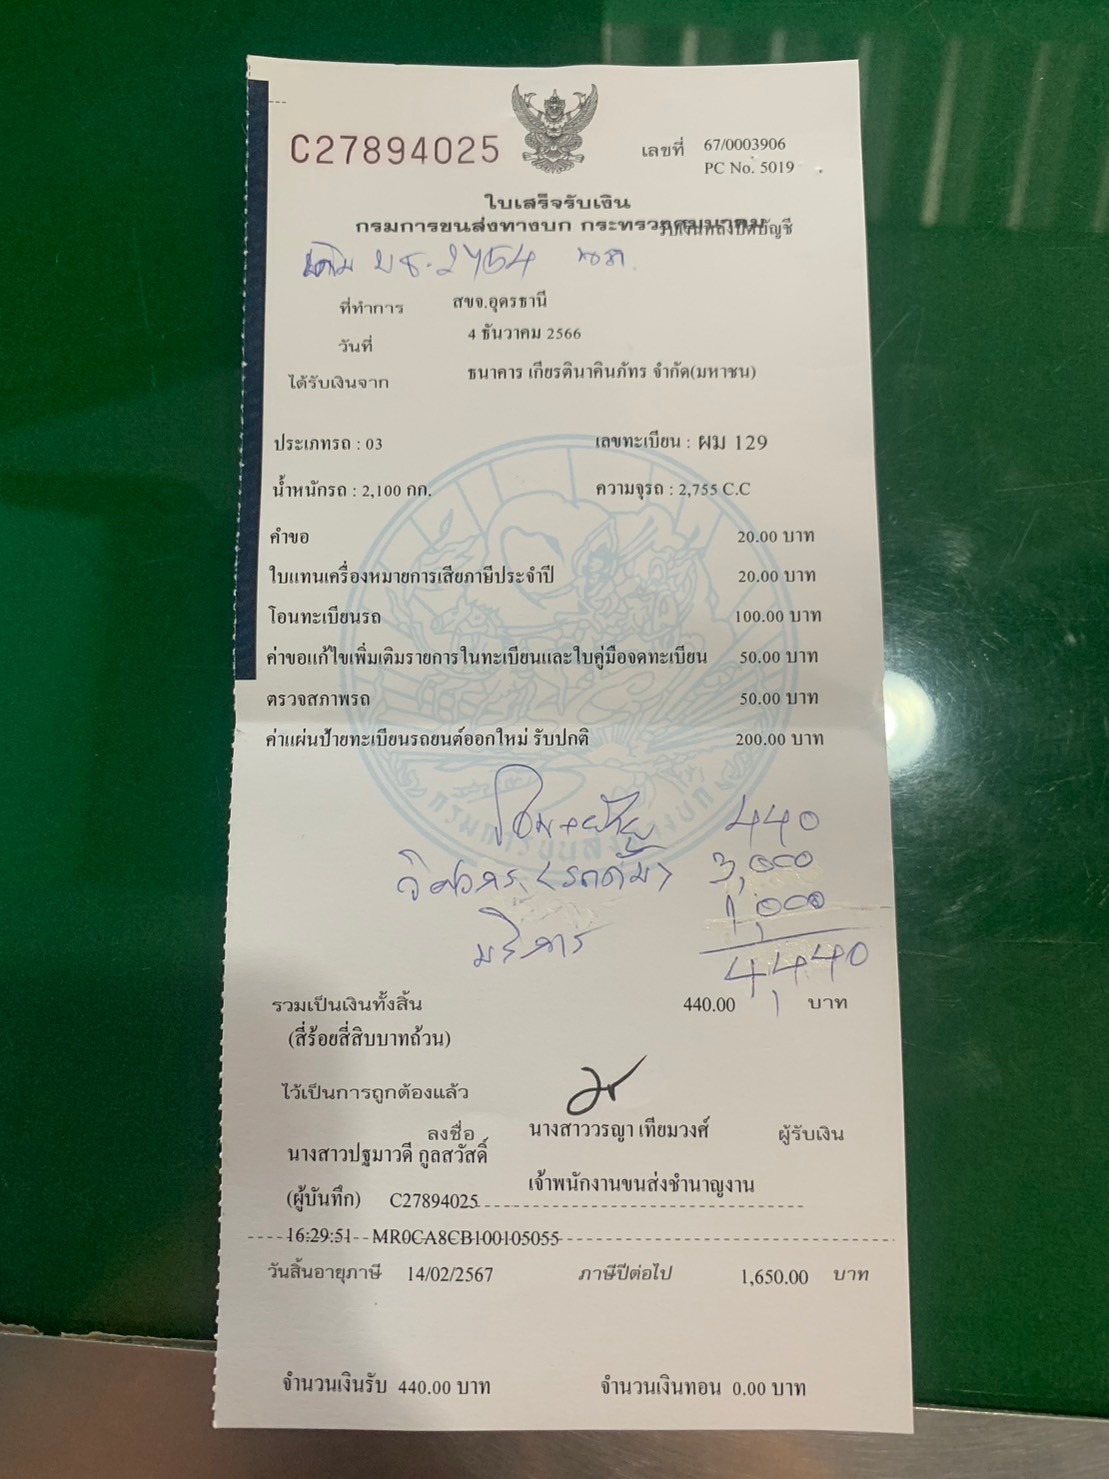 C27894025
เลขที่ 67/0003906
PC No. 5019
ใบเสร็จรับเงิน
กรมการขนส่งทางบก กระทรวงคมนาคม
รับเงินหลังปิดบัญชี
เดิม บธ.2754
ที่ทำการ สขจ.อุดรธานี
วันที่ 4 ธันวาคม 2566
ได้รับเงินจาก ธนาคาร เกียรตินาคินภัทร จำกัด(มหาชน)
ประเภทรถ : 03 เลขทะเบียน : ผม 129
น้ำหนักรถ : 2,100 กก. ความจุรถ : 2,755 C.C
คำขอ 20.00 บาท
ใบแทนเครื่องหมายการเสียภาษีประจำปี 20.00 บาท
โอนทะเบียนรถ 100.00 บาท
ค่าขอแก้ไขเพิ่มเติมรายการในทะเบียนและใบคู่มือจดทะเบียน 50.00 บาท
ตรวจสภาพรถ 50.00 บาท
ค่าแผ่นป้ายทะเบียนรถยนต์ออกใหม่ รับปกติ 200.00 บาท
กรมการขนส่งทางบก
โอน+ย้าย 440
วิศวกร (รถดั้ม) 3,000
บริการ 1,000
4,440
รวมเป็นเงินทั้งสิ้น 440.00 บาท
(สี่ร้อยสี่สิบบาทถ้วน)
ไว้เป็นการถูกต้องแล้ว
ลงชื่อ นางสาววรญา เทียมวงศ์ ผู้รับเงิน
นางสาวปฐมาวดี กูลสวัสดิ์
เจ้าพนักงานขนส่งชำนาญงาน
(ผู้บันทึก) C27894025
16:29:51 MR0CA8CB100105055
วันสิ้นอายุภาษี 14/02/2567 ภาษีปีต่อไป 1,650.00 บาท
จำนวนเงินรับ 440.00 บาท จำนวนเงินทอน 0.00 บาท